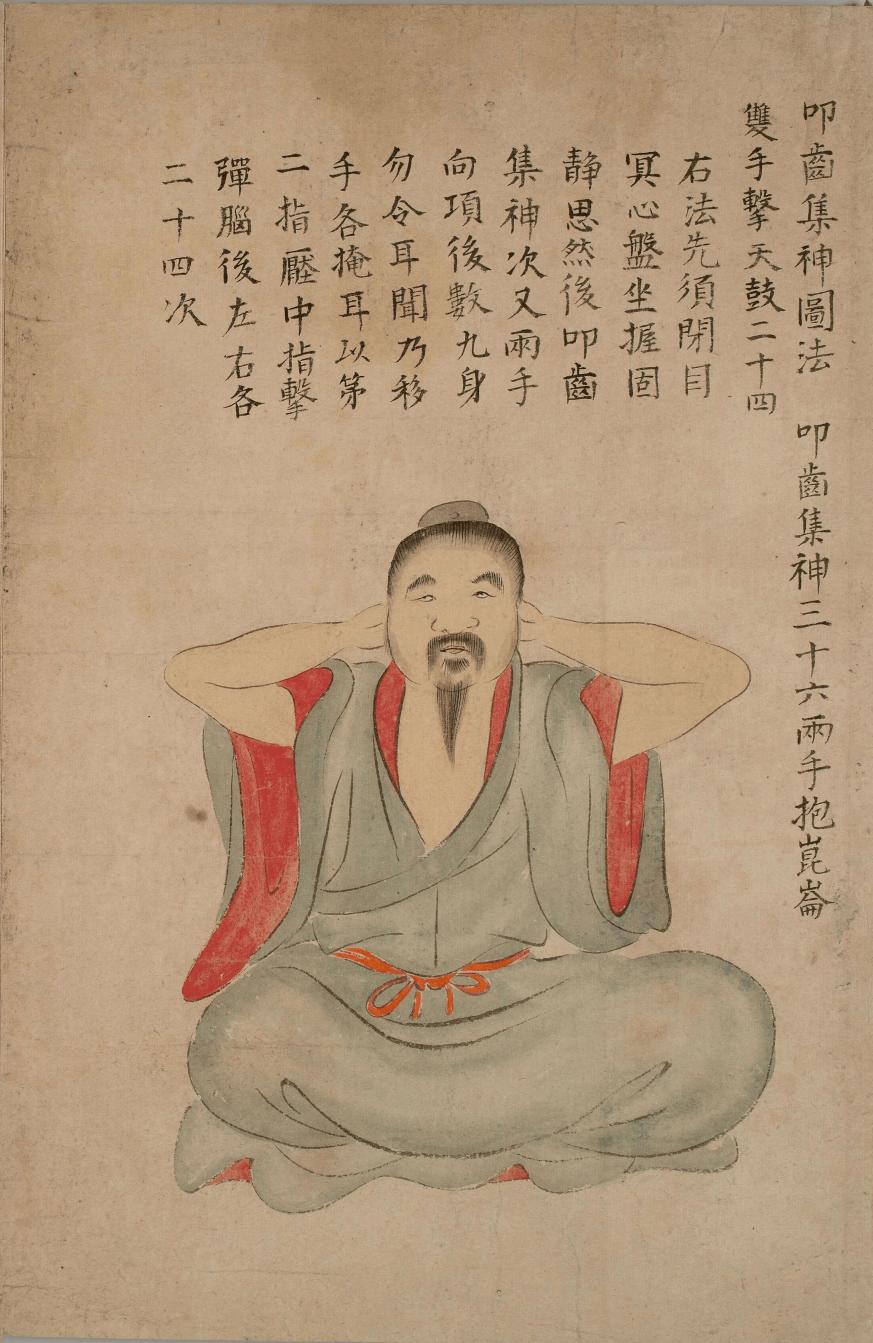 叩齒集神圖法　叩齒集神三十六兩手抱崑崙
雙手擊天鼓二十四
右法先須閉目
冥心盤坐握固
静思然後叩齒
集神次又兩手
向項後數九身
勿令耳聞乃移
手各掩耳以第
二指壓中指擊
彈腦後左右各
二十四次